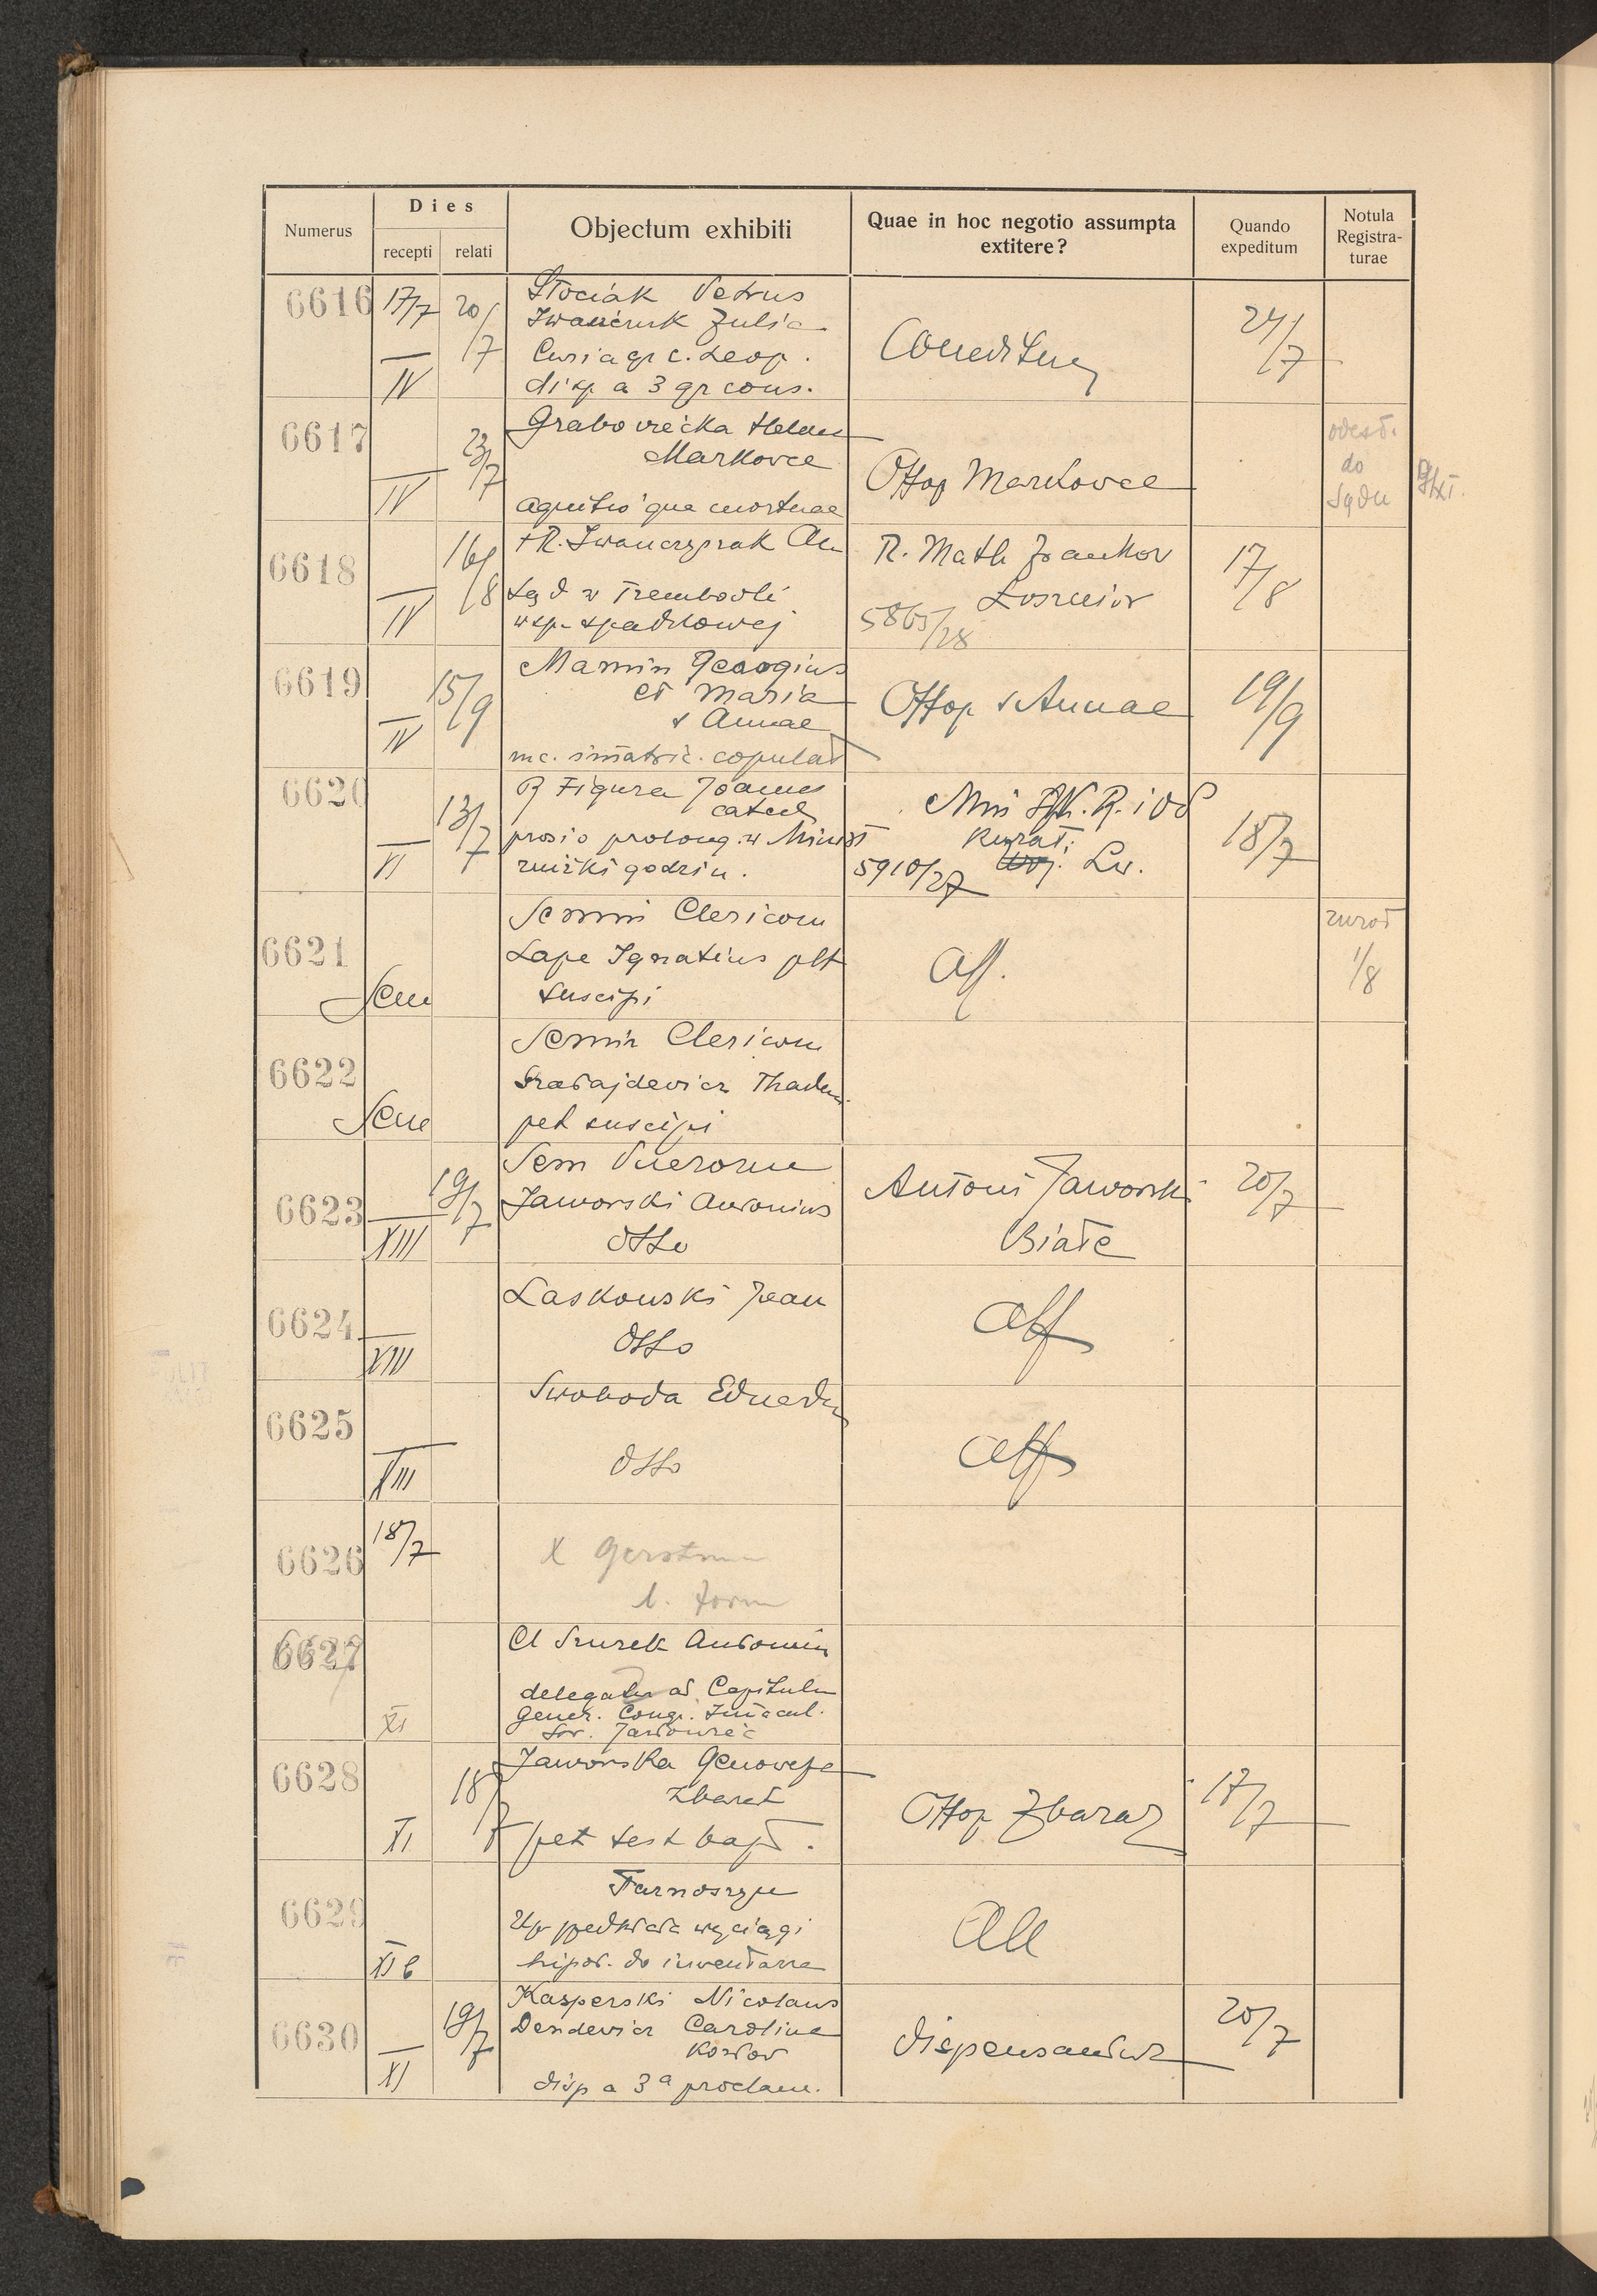 Numerus
Dies
recepti relati
Objectum exhibiti
Quae in hoc negotio assumpta
extitere?
Quando
expeditum
Notula
Registra-
turae
6616 17/7 20/7
IV
Stociak Petrus
Iwańczuk Julia
Curia gr c. Leop.
disp a 3 gr cons.
24/7
6617 23/7
IV
Grabowiecka Helena
Markowce
agnitio qua mortuae
Offop Markowce
odesł.
do
Sądu
6618 16/8
IV
+ R. Iwanczyszak
Sąd w Trembowli
w sp. spadkowej
R. Math Frankov
Łoszniów
5865/28
17/8
6619 15/9
IV
Mamin Georgius
et Maria
s Annae
mc. immatric. copulat
Offop s Annae
19/9
6620 13/7
VI
R Figura Joannes
catech
prosi o prolong. w Minist
zniżki godzin.
Min R. i OP
Kurat.
Lw.
5910/27
18/7
6621
Sem
Semin Clericom
Lape Ignatius plt
suscipi
Aff.
zwrot
1/8
6622
Sem
Semin Clericom
Thadeus
pet suscipi
6623 19/7
XIII
Sem Puerorum
Jaworski Antonius
dtto
Antoni Jaworski
Białe
20/7
6624
XIII
Laskowski Jean
dtto
Aff
6625
XIII
Swoboda Eduardus
dtto
Aff
6626 18/7
X Gerstman
6627
XI
Cl Szurek Antonius
delegatur ad Capitulum
Gener. Congr. Immacul.
6628 18/7
XI
Jaworska Genowefa
Zbaraż
pet test bapt.
Offop Zbaraż
17/7
6629
XI b
Tarnoszyn
wyciągi
hipot. do inwentarza
6630 19/7
XI
Kasperski Nicolaus
Dendewicz Carolina
Kozłów
disp a 3a proclam.
dispensantur
20/7